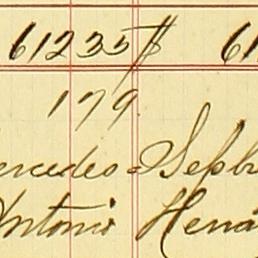 61235 $ 61
179
ercedes Sepb
Antonio Hena